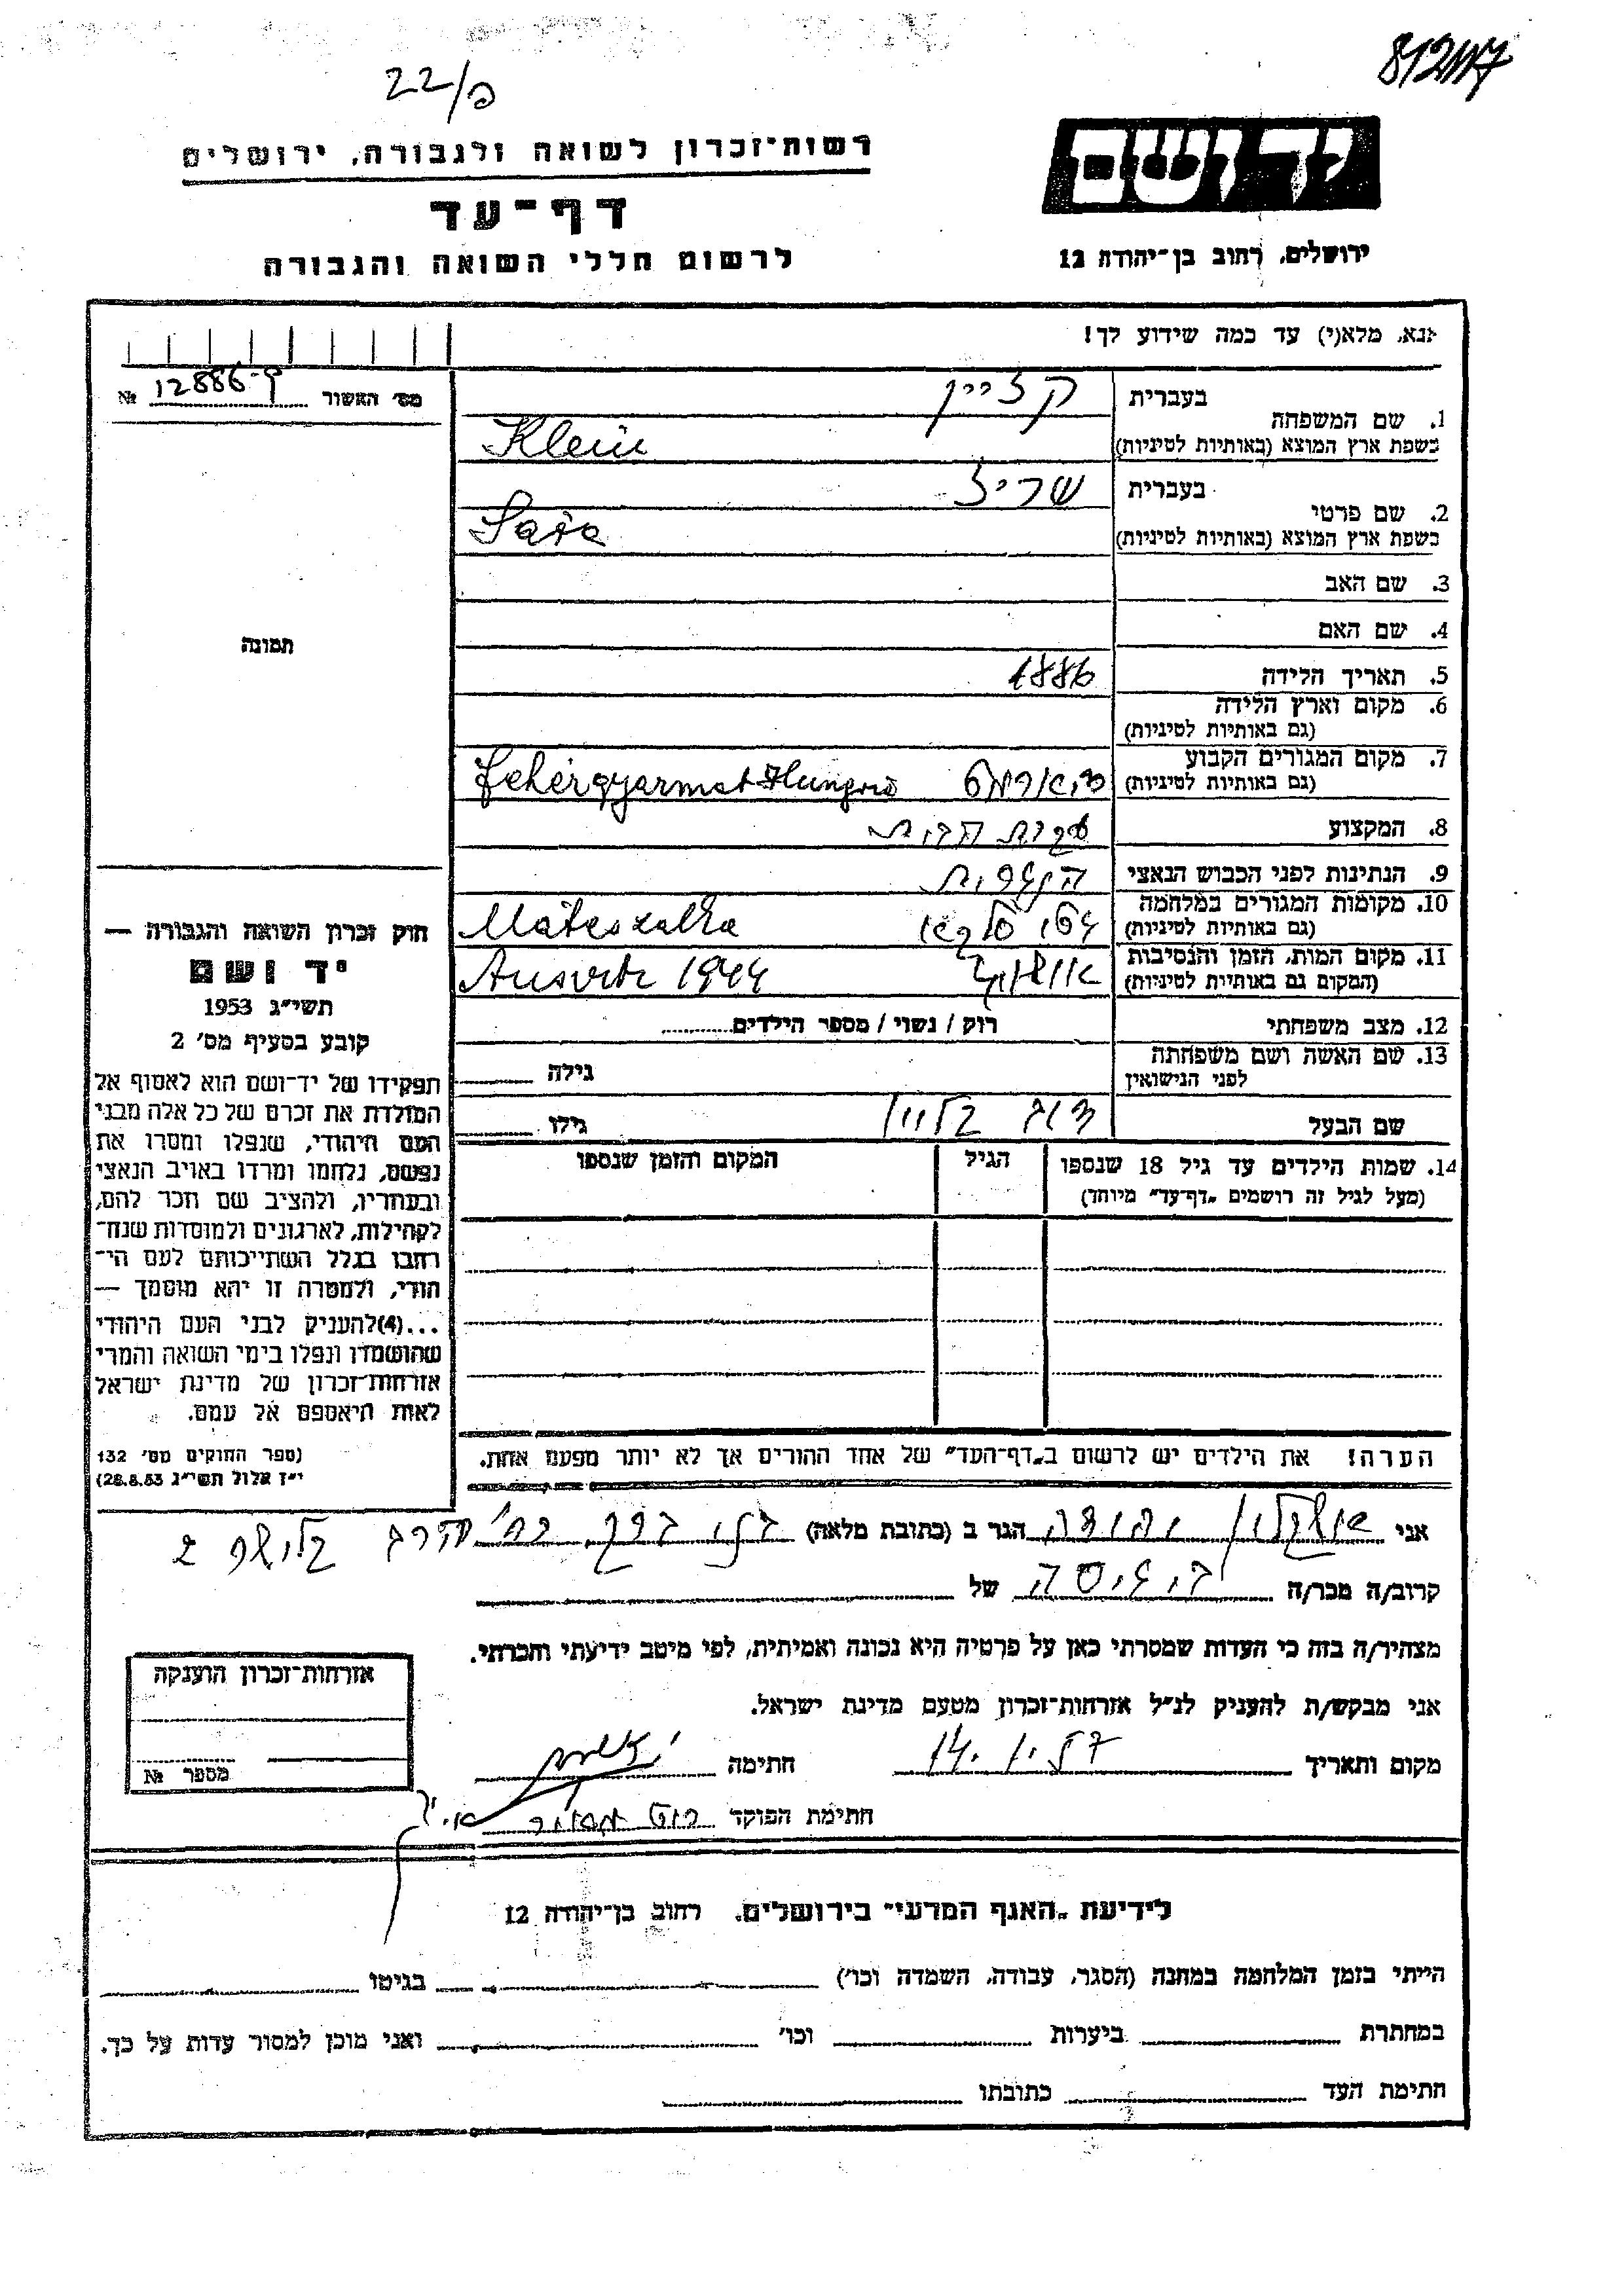 812117
22/פ
יד ושם
רשות־זכרון לשואה ולגבורה, ירושלים
דף־עד
לרשום חללי השואה והגבורה
ירושלים, רחוב בן־יהודה 12
אנא, מלא(י) עד כמה שידוע לך!
מס׳ האשור 12886-פ №
תמונה
1. שם המשפחה
בעברית קליין
כשפת ארץ המוצא (באותיות לטיניות) Klein
2. שם פרטי
בעברית שרי
כשפת ארץ המוצא (באותיות לטיניות)
3. שם האב
4. שם האם
5. תאריך הלידה 1886
6. מקום וארץ הלידה
(גם באותיות לטיניות)
7. מקום המגורים הקבוע
(גם באותיות לטיניות) Fehérgyarmat Hungria
8. המקצוע עקרת הבית
9. הנתינות לפני הכבוש הנאצי הונגרית
10. מקומות המגורים במלחמה
(גם באותיות לטיניות) Mateszalka
11. מקום המות, הזמן והנסיבות
(המקום גם באותיות לטיניות) אושויץ 1944
12. מצב משפחתי רוק / נשוי / מספר הילדים
13. שם האשה ושם משפחתה
לפני הנישואין
גילה
שם הבעל קליין
גילו
14. שמות הילדים עד גיל 18 שנספו
(מעל לגיל זה רושמים „דף־עד״ מיוחד)
הגיל
המקום והזמן שנספו
הערה! את הילדים יש לרשום ב„דף־העד״ של אחד ההורים אך לא יותר מפעם אחת.
חוק זכרון השואה והגבורה —
יד ושם
תשי״ג 1953
קובע בסעיף מס׳ 2
תפקידו של יד־ושם הוא לאסוף אל
המולדת את זכרם של כל אלה מבני
העם היהודי, שנפלו ומסרו את
נפשם, נלחמו ומרדו באויב הנאצי
ובעוזריו, ולהציב שם וזכר להם,
לקהילות, לארגונים ולמוסדות שנח־
רבו בגלל השתייכותם לעם הי־
הודי, ולמטרה זו יהא מוסמך —
...(4) להעניק לבני העם היהודי
שהושמדו ונפלו בימי השואה והמרי
אזרחות־זכרון של מדינת ישראל
לאות היאספם אל עמם.
(ספר החוקים מס׳ 132
י״ז אלול תשי״ג 28.8.53)
אני אשקלון יהודה הגר ב (כתובת מלאה) בני ברק רח׳
קרוב/ה מכר/ה של
מצהיר/ה בזה כי העדות שמסרתי כאן על פרטיה היא נכונה ואמיתית, לפי מיטב ידיעתי והכרתי.
אני מבקש/ת להעניק לנ״ל אזרחות־זכרון מטעם מדינת ישראל.
מקום ותאריך
חתימה
חתימת הפוקד
אזרחות־זכרון הוענקה
מספר №
לידיעת „האגף המדעי״ בירושלים. רחוב בן־יהודה 12
הייתי בזמן המלחמה במחנה (הסגר, עבודה, השמדה וכו׳) בגיטו
במחתרת ביערות וכו׳ ואני מוכן למסור עדות על כך.
חתימת העד כתובתו